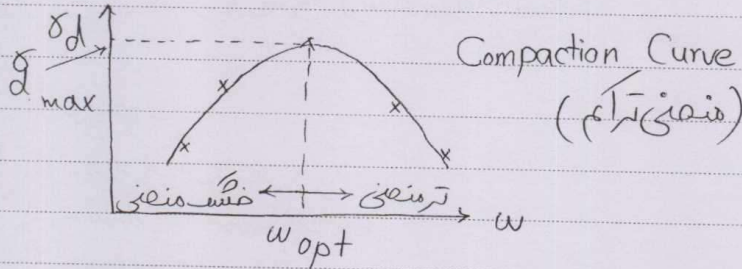 γd
Compaction Curve
γd max
(منحنی تراکم)
خشک منحنی ↔ تر منحنی
ω
ω opt